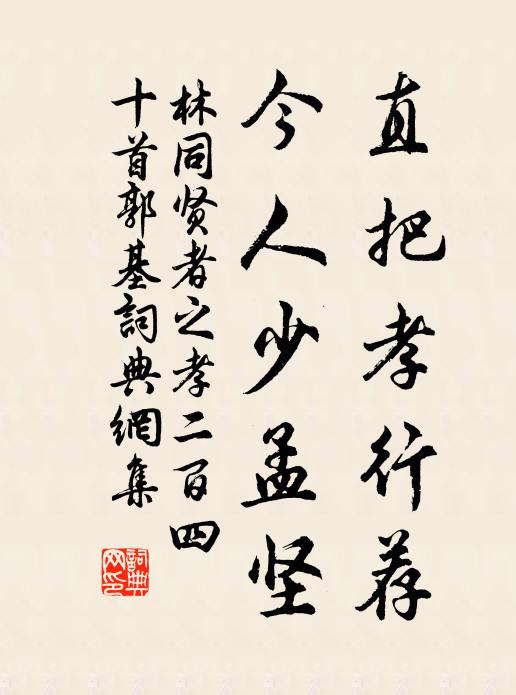 直把孝行荐
今人少孟坚
林同贤者之孝二百四
十首郭基詞典網集
詞典网印